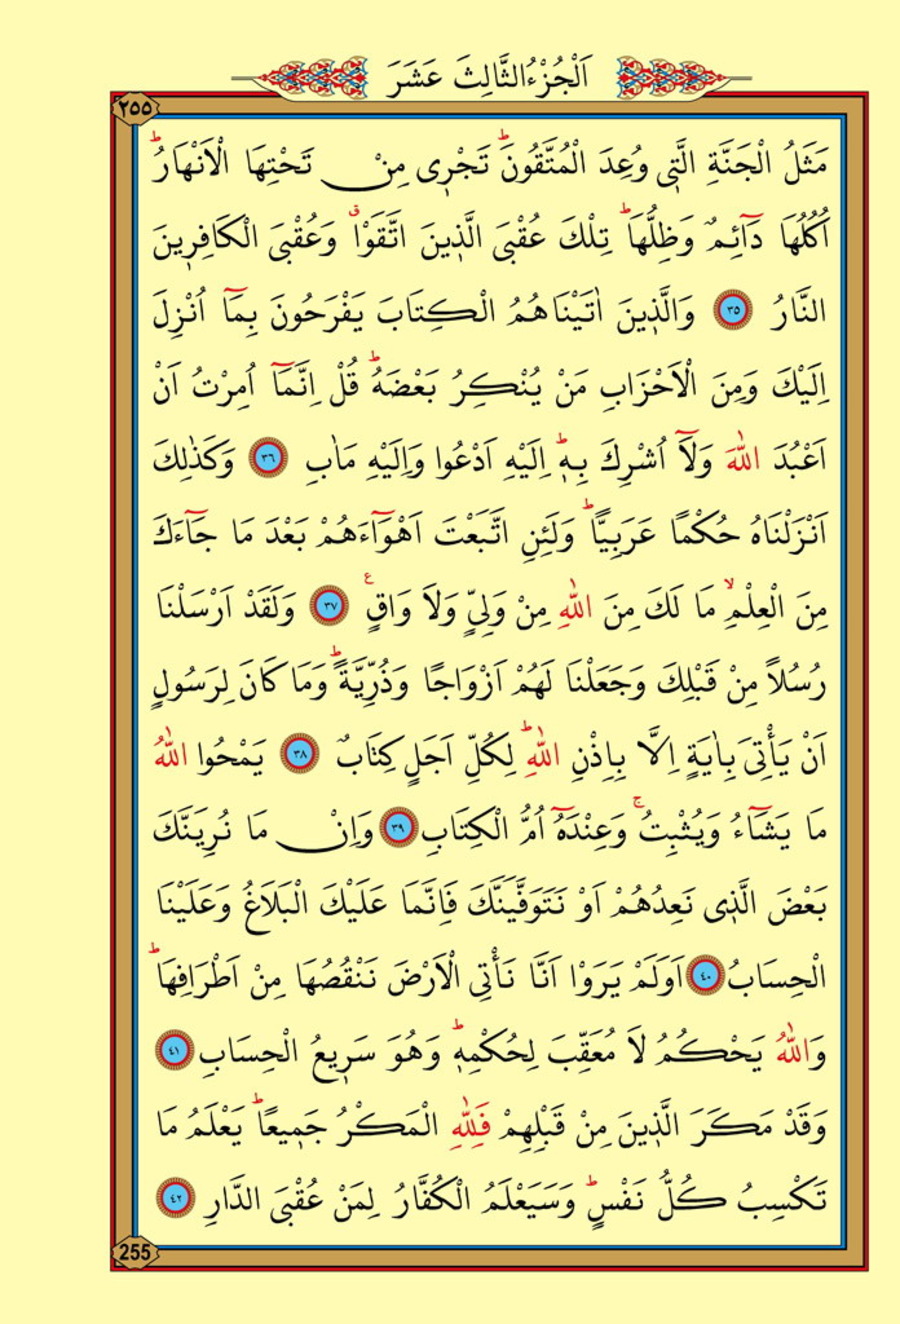 اَلْجُزْءُالثَّالِثَ عَشَرَ
٢٥٥
مَثَلُ الْجَنَّةِ الَّتٖى وُعِدَ الْمُتَّقُونَؕ تَجْرٖى مِنْ تَحْتِهَا الْاَنْهَارُؕ
اُكُلُهَا دَٓائِمٌ وَظِلُّهَاؕ تِلْكَ عُقْبَى الَّذٖينَ اتَّقَوْاࣗ وَعُقْبَى الْكَافِرٖينَ
النَّارُ ٣٥ وَالَّذٖينَ اٰتَيْنَاهُمُ الْكِتَابَ يَفْرَحُونَ بِمَٓا اُنْزِلَ
اِلَيْكَ وَمِنَ الْاَحْزَابِ مَنْ يُنْكِرُ بَعْضَهُؕ قُلْ اِنَّمَٓا اُمِرْتُ اَنْ
اَعْبُدَ اللّٰهَ وَلَٓا اُشْرِكَ بِهٖؕ اِلَيْهِ اَدْعُوا وَاِلَيْهِ مَاٰبِ ٣٦ وَكَذٰلِكَ
اَنْزَلْنَاهُ حُكْمًا عَرَبِيًّاؕ وَلَئِنِ اتَّبَعْتَ اَهْوَٓاءَهُمْ بَعْدَ مَا جَٓاءَكَ
مِنَ الْعِلْمِۙ مَا لَكَ مِنَ اللّٰهِ مِنْ وَلِيٍّ وَلَا وَاقٍ ع ٣٧ وَلَقَدْ اَرْسَلْنَا
رُسُلًا مِنْ قَبْلِكَ وَجَعَلْنَا لَهُمْ اَزْوَاجًا وَذُرِّيَّةًؕ وَمَا كَانَ لِرَسُولٍ
اَنْ يَأْتِىَ بِاٰيَةٍ اِلَّا بِاِذْنِ اللّٰهِؕ لِكُلِّ اَجَلٍ كِتَابٌ ٣٨ يَمْحُوا اللّٰهُ
مَا يَشَٓاءُ وَيُثْبِتُۚ وَعِنْدَهُٓ اُمُّ الْكِتَابِ ٣٩ وَاِنْ مَا نُرِيَنَّكَ
بَعْضَ الَّذٖى نَعِدُهُمْ اَوْ نَتَوَفَّيَنَّكَ فَاِنَّمَا عَلَيْكَ الْبَلَاغُ وَعَلَيْنَا
الْحِسَابُ ٤٠ اَوَلَمْ يَرَوْا اَنَّا نَأْتِى الْاَرْضَ نَنْقُصُهَا مِنْ اَطْرَافِهَاؕ
وَاللّٰهُ يَحْكُمُ لَا مُعَقِّبَ لِحُكْمِهٖؕ وَهُوَ سَرٖيعُ الْحِسَابِ ٤١
وَقَدْ مَكَرَ الَّذٖينَ مِنْ قَبْلِهِمْ فَلِلّٰهِ الْمَكْرُ جَمٖيعًاؕ يَعْلَمُ مَا
تَكْسِبُ كُلُّ نَفْسٍؕ وَسَيَعْلَمُ الْكُفَّارُ لِمَنْ عُقْبَى الدَّارِ ٤٢
255